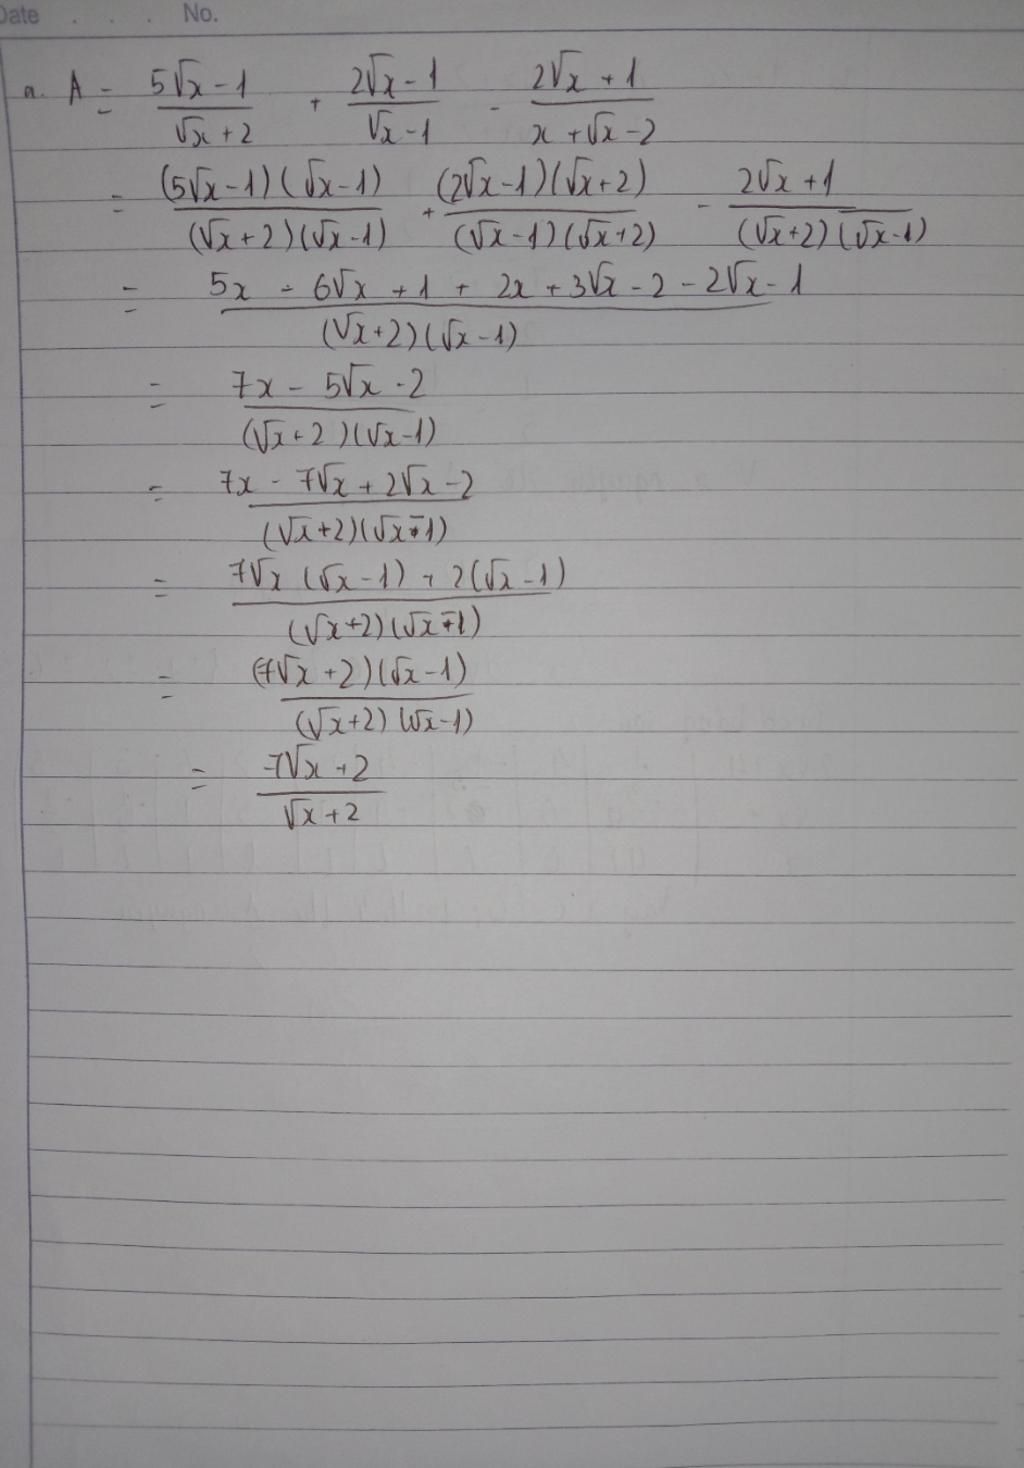 Date . . . No.
a. A = (5√x - 1)/(√x + 2) + (2√x - 1)/(√x - 1) - (2√x + 1)/(x + √x - 2)
= (5√x - 1)(√x - 1)/(√x + 2)(√x - 1) + (2√x - 1)(√x + 2)/(√x - 1)(√x + 2) - (2√x + 1)/(√x + 2)(√x - 1)
= (5x - 6√x + 1 + 2x + 3√x - 2 - 2√x - 1)/(√x + 2)(√x - 1)
= (7x - 5√x - 2)/(√x + 2)(√x - 1)
= (7x - 7√x + 2√x - 2)/(√x + 2)(√x - 1)
= (7√x (√x - 1) + 2(√x - 1))/(√x + 2)(√x - 1)
= (7√x + 2)(√x - 1)/(√x + 2)(√x - 1)
= (7√x + 2)/(√x + 2)